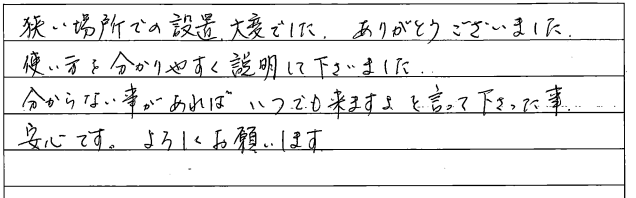 狭い場所での設置、大変でした。ありがとうございました。
使い方を分かりやすく説明して下さいました。
分からない事があれば いつでも来ますよ と言って下さった事、
安心です。よろしくお願いします